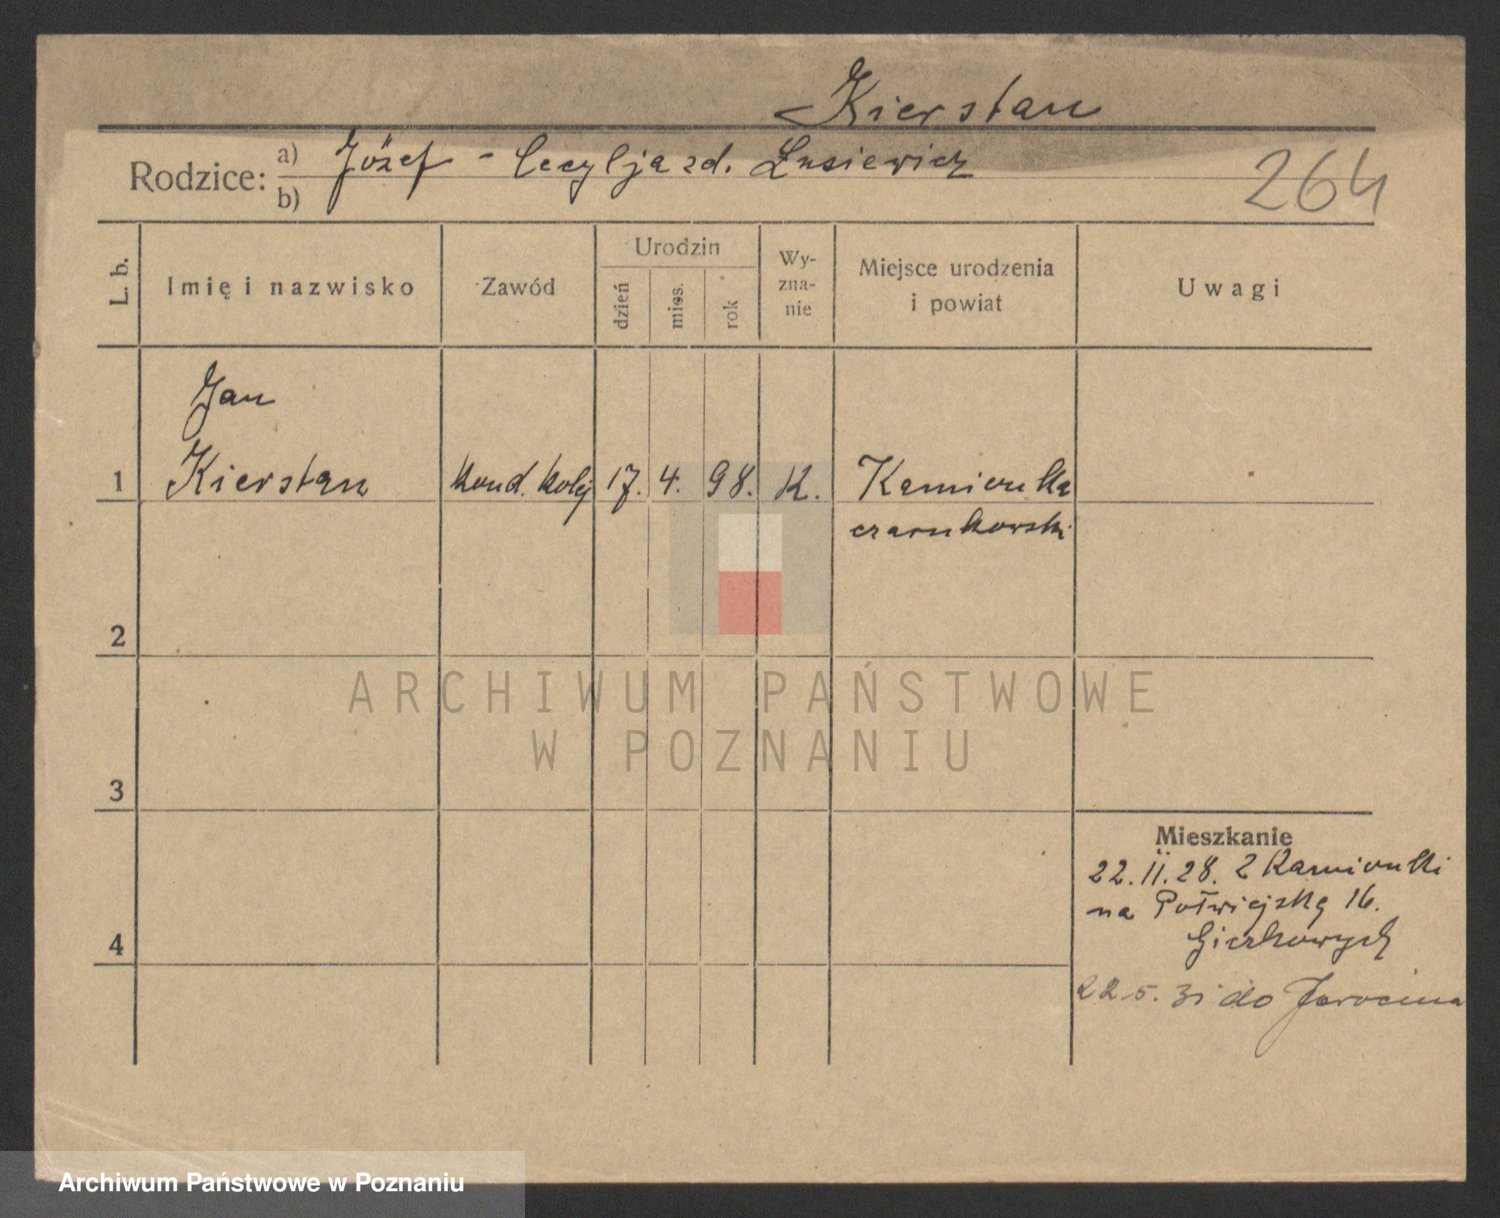 Kierstan
Rodzice: a) Józef - Cecylja zd. Łusiewicz
b)
264
L. b.
Imię i nazwisko
Zawód
Urodzin
dzień
mies.
rok
Wy-
zna-
nie
Miejsce urodzenia
i powiat
Uwagi
Jan
1 Kierstan kond. kolej 17. 4. 98. K. Kamionka
czarnkowski
2
3
4
Mieszkanie
22.II.28. z Kamionki
na Półwiejską 16.
22.5.31 do Jarocina
ARCHIWUM PAŃSTWOWE
W POZNANIU
Archiwum Państwowe w Poznaniu